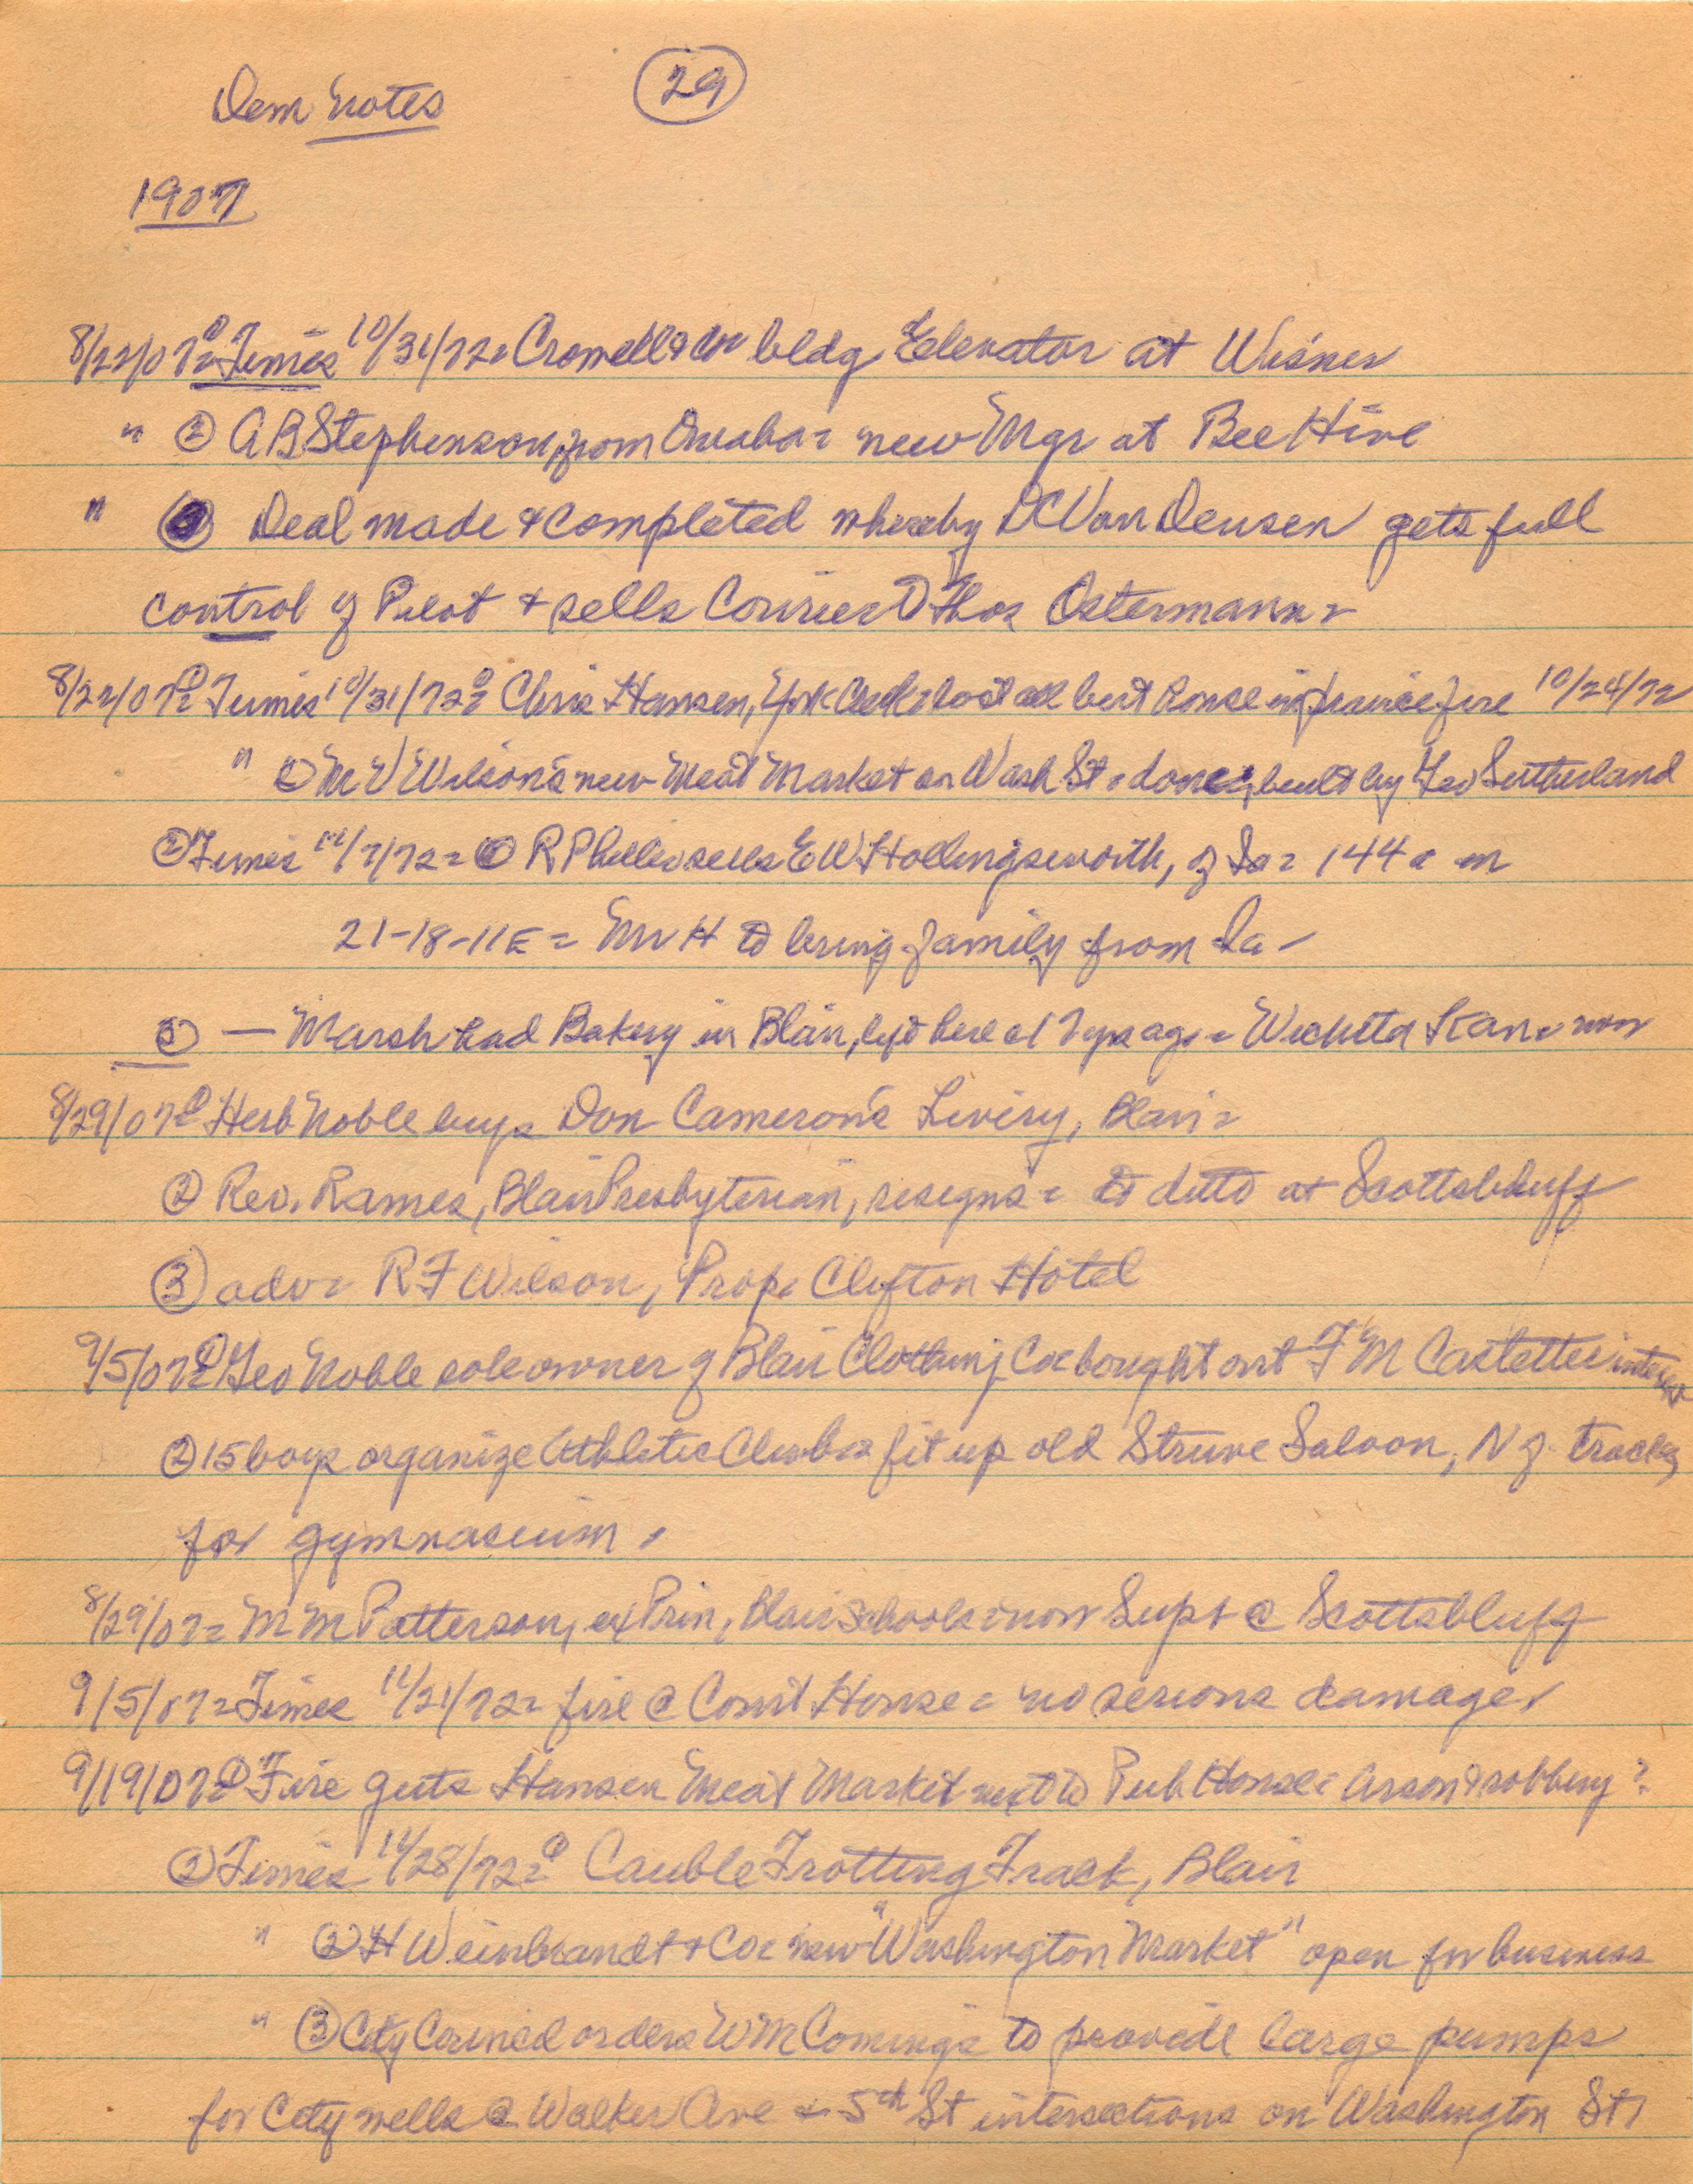 Dem Notes (29)
1907
8/22/07= ① Times 10/31/72= Crowell & Co= bldg Elevator at Wisner
" ② A B Stephenson, from Omaha= new Mgr at Bee Hive
" ③ Deal made & completed whereby D C Van Deusen gets full
control of Pilot & sells Courier to Thos Ostermann=
8/22/07= ① Times 10/31/72= ① Chris Hansen, York Creek= lost all but house in prairie fire 10/24/72
" ② M V Wilson's new Meat Market on Wash St= done, built by Geo Sutherland
② Times 11/7/72= ① R P sells E W Hollingsworth, of Ia= 144 a in
21-18-11E= Mr H to bring family from Ia-
③ — Marsh had Bakery in Blair, left here 7 yrs ago= Wichita Kan= now
8/29/07= ① Herb Noble buys Don Cameron's Livery, Blair=
② Rev. Rames, Blair Presbyterian, resigns= to ditto at Scottsbluff
③ adv= R F Wilson, Prop= Clifton Hotel
9/5/07= ① Geo Noble sole owner of Blair Clothing Co= bought out F M Castetter interest
② 15 boys organize Athletic Club= fit up old Struve Saloon, N of tracks,
for gymnasium.
8/29/07= M M Patterson, ex Prin, Blair Schools= now Supt @ Scottsbluff
9/5/07= Times 11/21/72= fire @ Court House= no serious damage.
9/19/07= ① Fire guts Hansen Meat Market next to Pub House= Arson & robbery?
② Times 11/28/72= ① Cauble Trotting Track, Blair
" ② H Weinbrandt & Co= new "Washington Market" open for business
" ③ City Council orders W M Comings to provide large pumps
for City wells @ Walker Ave & 5th St intersections on Washington St.